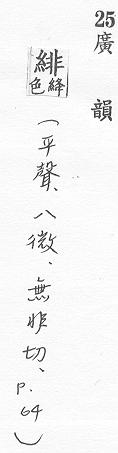 25 廣韻
緋
絳色
(平聲、八微、無非切、P.64)